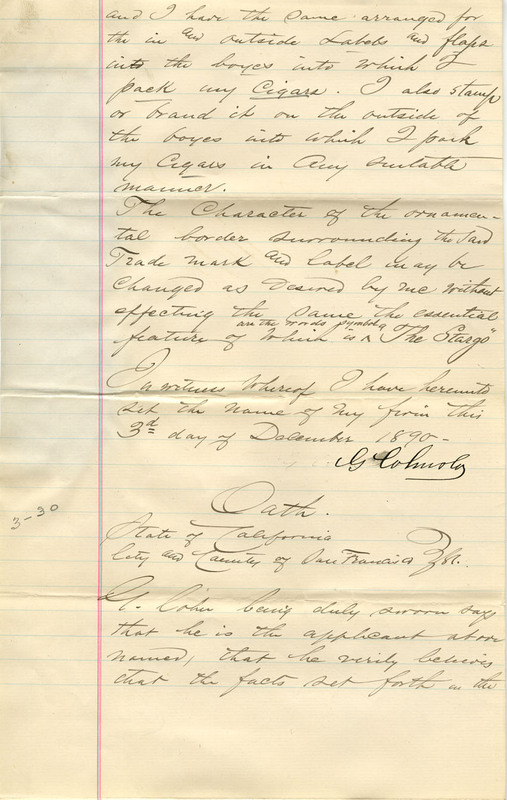 and I have the same arranged for
the in and outside Labels and flaps
into the boxes into which I
pack my Cigars. I also stamp
or brand it on the outside of
the boxes into which I pack
my Cigars in any suitable
manner.
The Character of the ornamen-
tal border surrounding the said
Trade mark and Label may be
Changed as desired by me without
effecting the same the essential
are the words symbol a
feature of which is The
In witness Whereof I have hereunto
set the name of my firm this
3d day of December 1890-
Oath.
3-30
State of California
City and County of San Francisco } ss.
G. Cohn being duly sworn says
that he is the applicant above
named, that he verily believes
that the facts set forth in the